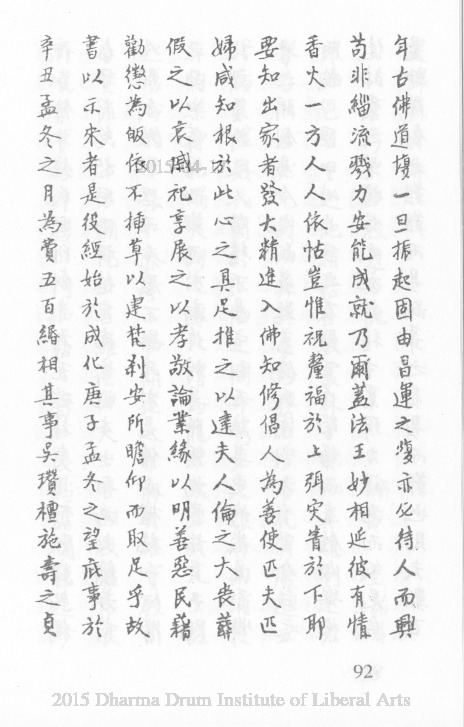 年古佛道場一旦振起固由昌運之復亦必待人而興
苟非緇流勠力安能成就乃爾蓋法王妙相延彼有情
香火一方人人依怙豈惟祝釐福於上弭灾眚於下耶
要知出家者發大精進入佛知修倡人為善使匹夫匹
婦咸知根於此心之具足推之以達夫人倫之大喪薦
假之以哀慼祀享展之以孝敬論業緣以明善惡民藉
勸懲為皈依不揷草以建梵刹安所瞻仰而取足乎故
書以示宋者是役經始於成化庚子孟冬之望底事於
辛丑孟冬之月為費五百緡相其事吳瓚檀施壽之貞
92
2015 Dharma Drum Institute of Liberal Arts